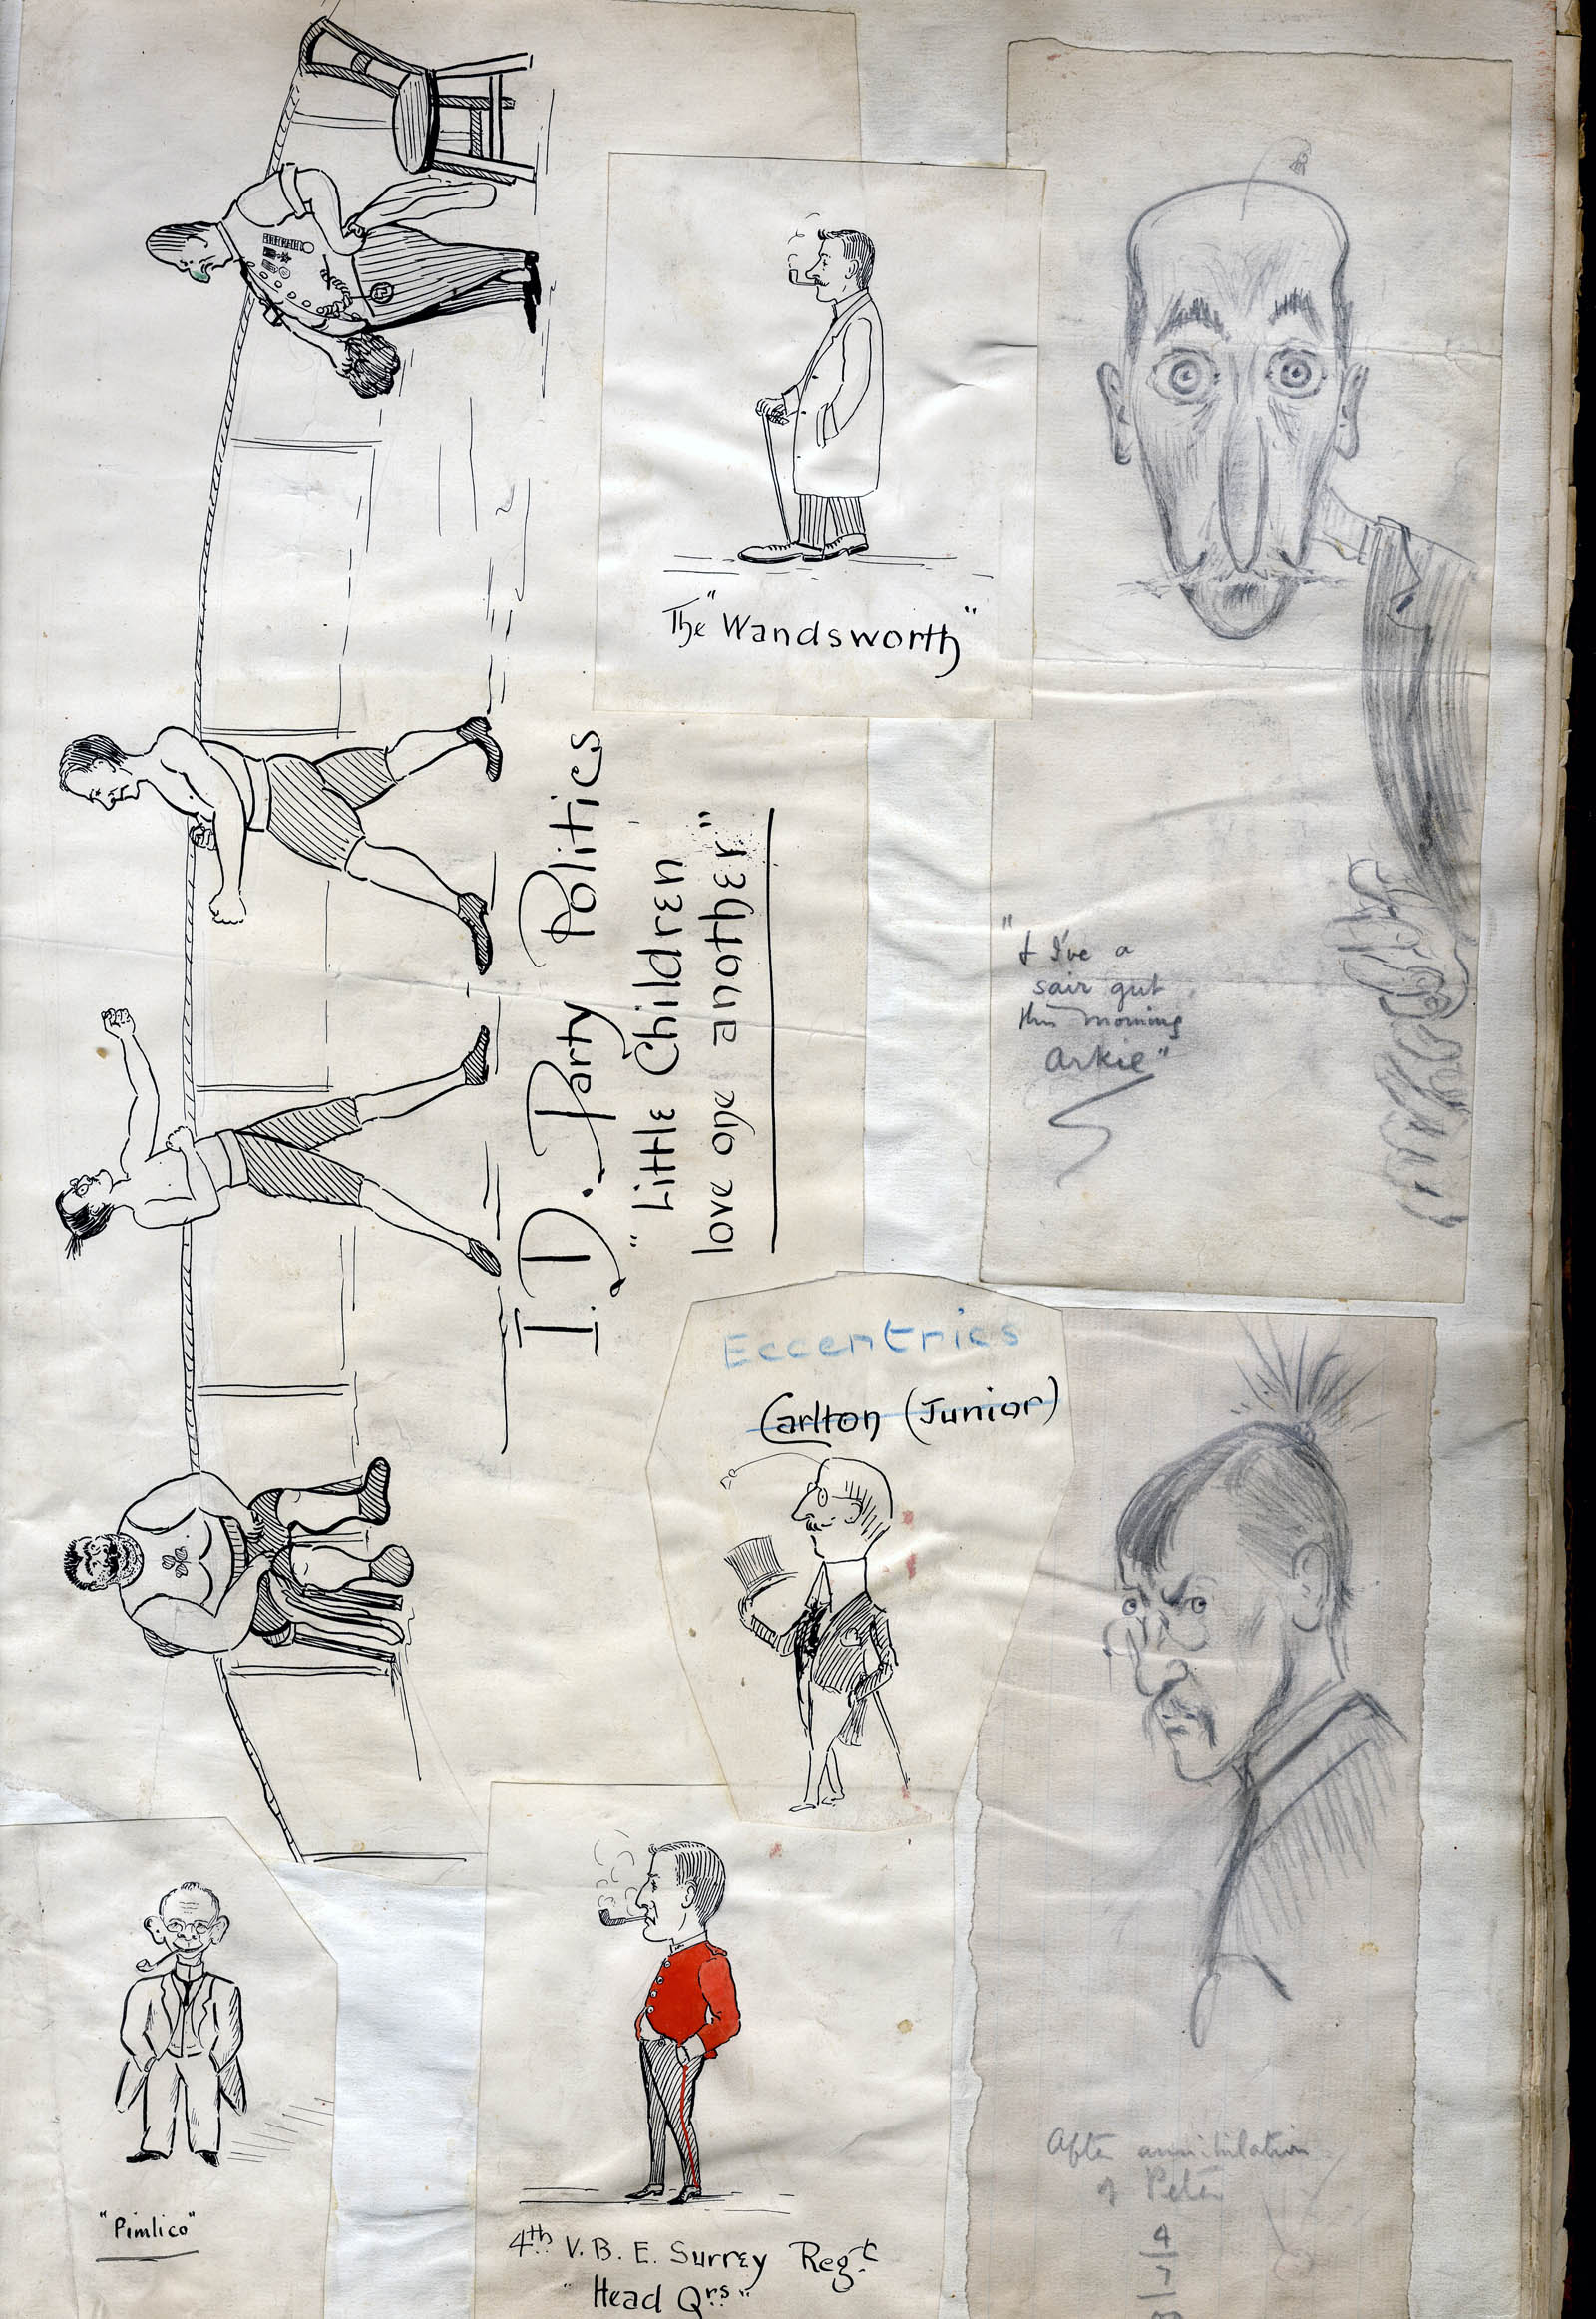 The "Wandsworth"
I.D. Party Politics
"Little Children
love one another"
"& I've a
sair gut
this morning
Arkie"
Eccentrics
Carlton (Junior)
"Pimlico"
4th V. B. E. Surrey Regt
"Head Qrs"
After annihilation
of Peter
4
7